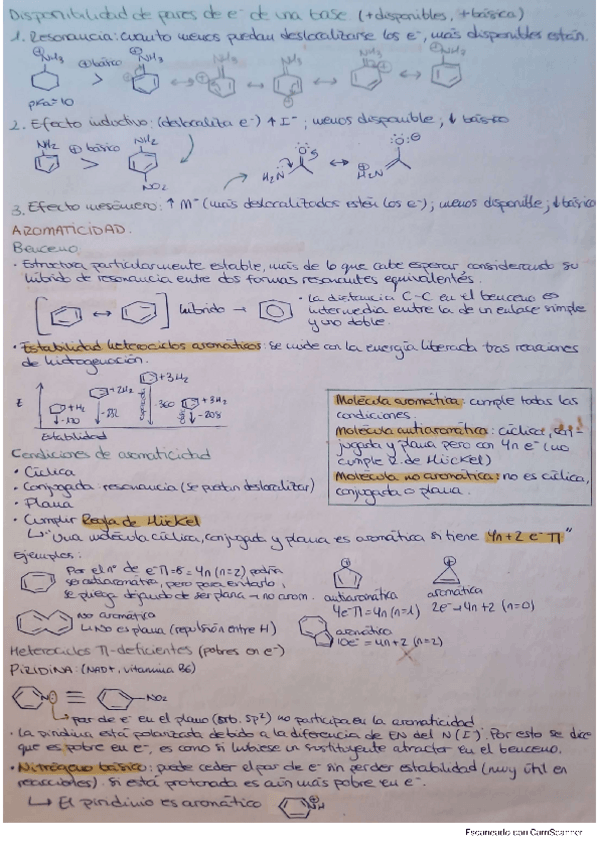 Disponibilidad de pares de e⁻ de una base (+disponibles, +básica)
1. Resonancia: cuanto menos puedan deslocalizarse los e⁻, más disponibles están.
NH₃ ⊕ básico NH₃ NH₃ NH₃ NH₃ NH₃
>
pKa=10
2. Efecto inductivo: (deslocaliza e⁻) ↑ I⁻; menos disponible; ↓ básico
NH₂ ⊕ básico NH₂
>
NO₂
H₂N H₂N
3. Efecto mesómero: ↑ M⁻ (más deslocalizados están los e⁻); menos disponible; ↓ básico
AROMATICIDAD.
Benceno:
· Estructura particularmente estable, más de lo que cabe esperar, considerando su
híbrido de resonancia entre dos formas resonantes equivalentes.
híbrido →
· La distancia C-C en el benceno es
intermedia entre la de un enlace simple
y uno doble.
· Estabilidad heterociclos aromáticos: se mide con la energía liberada tras reacciones
de hidrogenación.
E
+H₂ +2H₂ +3H₂ +3H₂
-120 -232 -360 -208
Estabilidad
Molécula aromática: cumple todas las
condiciones.
Molécula antiaromática: cíclica, con-
jugada y plana pero con 4n e⁻ (no
cumple R. de Hückel)
Molécula no aromática: no es cíclica,
conjugada o plana.
Condiciones de aromaticidad
· Cíclica
· Conjugada: resonancia (se puedan deslocalizar)
· Plana
· Cumplir Regla de Hückel
↳ "Una molécula cíclica, conjugada y plana es aromática si tiene 4n+2 e⁻ π"
Ejemplos:
Por el nº de e⁻π=8=4n (n=2) podría
ser antiaromática, pero para evitarlo,
se pliega dejando de ser plana → no arom.
antiaromática
4e⁻π=4n (n=1)
aromática
2e⁻→4n+2 (n=0)
No aromática
↳ No es plana (repulsión entre H)
aromático
10e⁻=4n+2 (n=2)
Heterociclos π-deficientes (pobres en e⁻)
PIRIDINA: (NAD+, vitamina B6)
N ≡ NO₂
↳ par de e⁻ en el plano (orb. sp²) no participa en la aromaticidad
· La piridina está polarizada debido a la diferencia de EN del N (I⁻). Por esto se dice
que es pobre en e⁻, es como si hubiese un sustituyente atractor en el benceno.
· Nitrógeno básico: puede ceder el par de e⁻ sin perder estabilidad (muy útil en
reacciones). Si está protonada es aún más pobre en e⁻.
↳ El piridinio es aromático NH
Escaneado con CamScanner